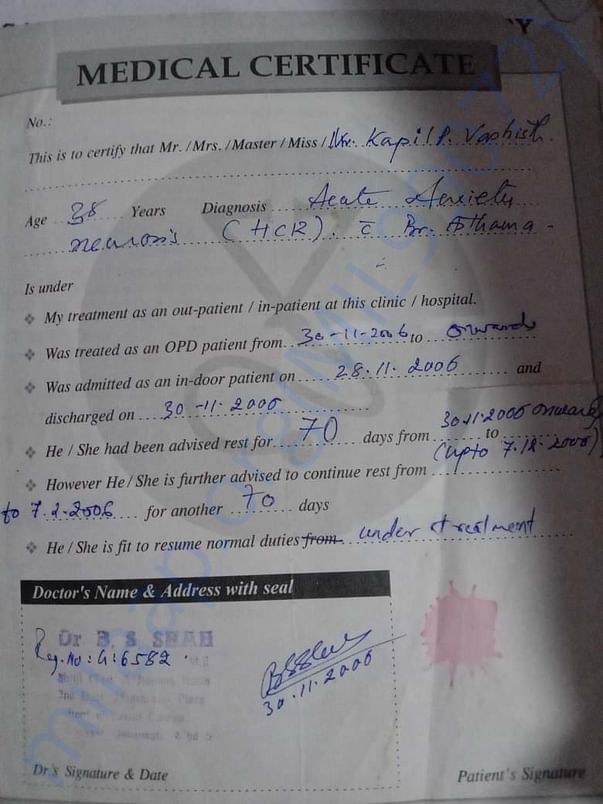 MEDICAL CERTIFICATE
No.:
This is to certify that Mr. /Mrs. /Master / Miss / Mr. Kapil P. Vashist.
Age 38 Years Diagnosis Acute Anxiety
neurosis (HCR). c̄ Br. Asthama -
Is under
My treatment as an out-patient / in-patient at this clinic / hospital.
Was treated as an OPD patient from 30-11-2006 to onwards
Was admitted as an in-door patient on 28.11.2006 and
discharged on 30-11-2006
He / She had been advised rest for 70 days from 30.11.2006 onwards to (upto 7.12.2006)
However He / She is further advised to continue rest from
to 7.2.2006 for another 70 days
He / She is fit to resume normal duties from under treatment
Doctor's Name & Address with seal
Dr B. S. SHAH
Reg. No: G:6582
30.11.2006
Dr.'s Signature & Date
Patient's Signature